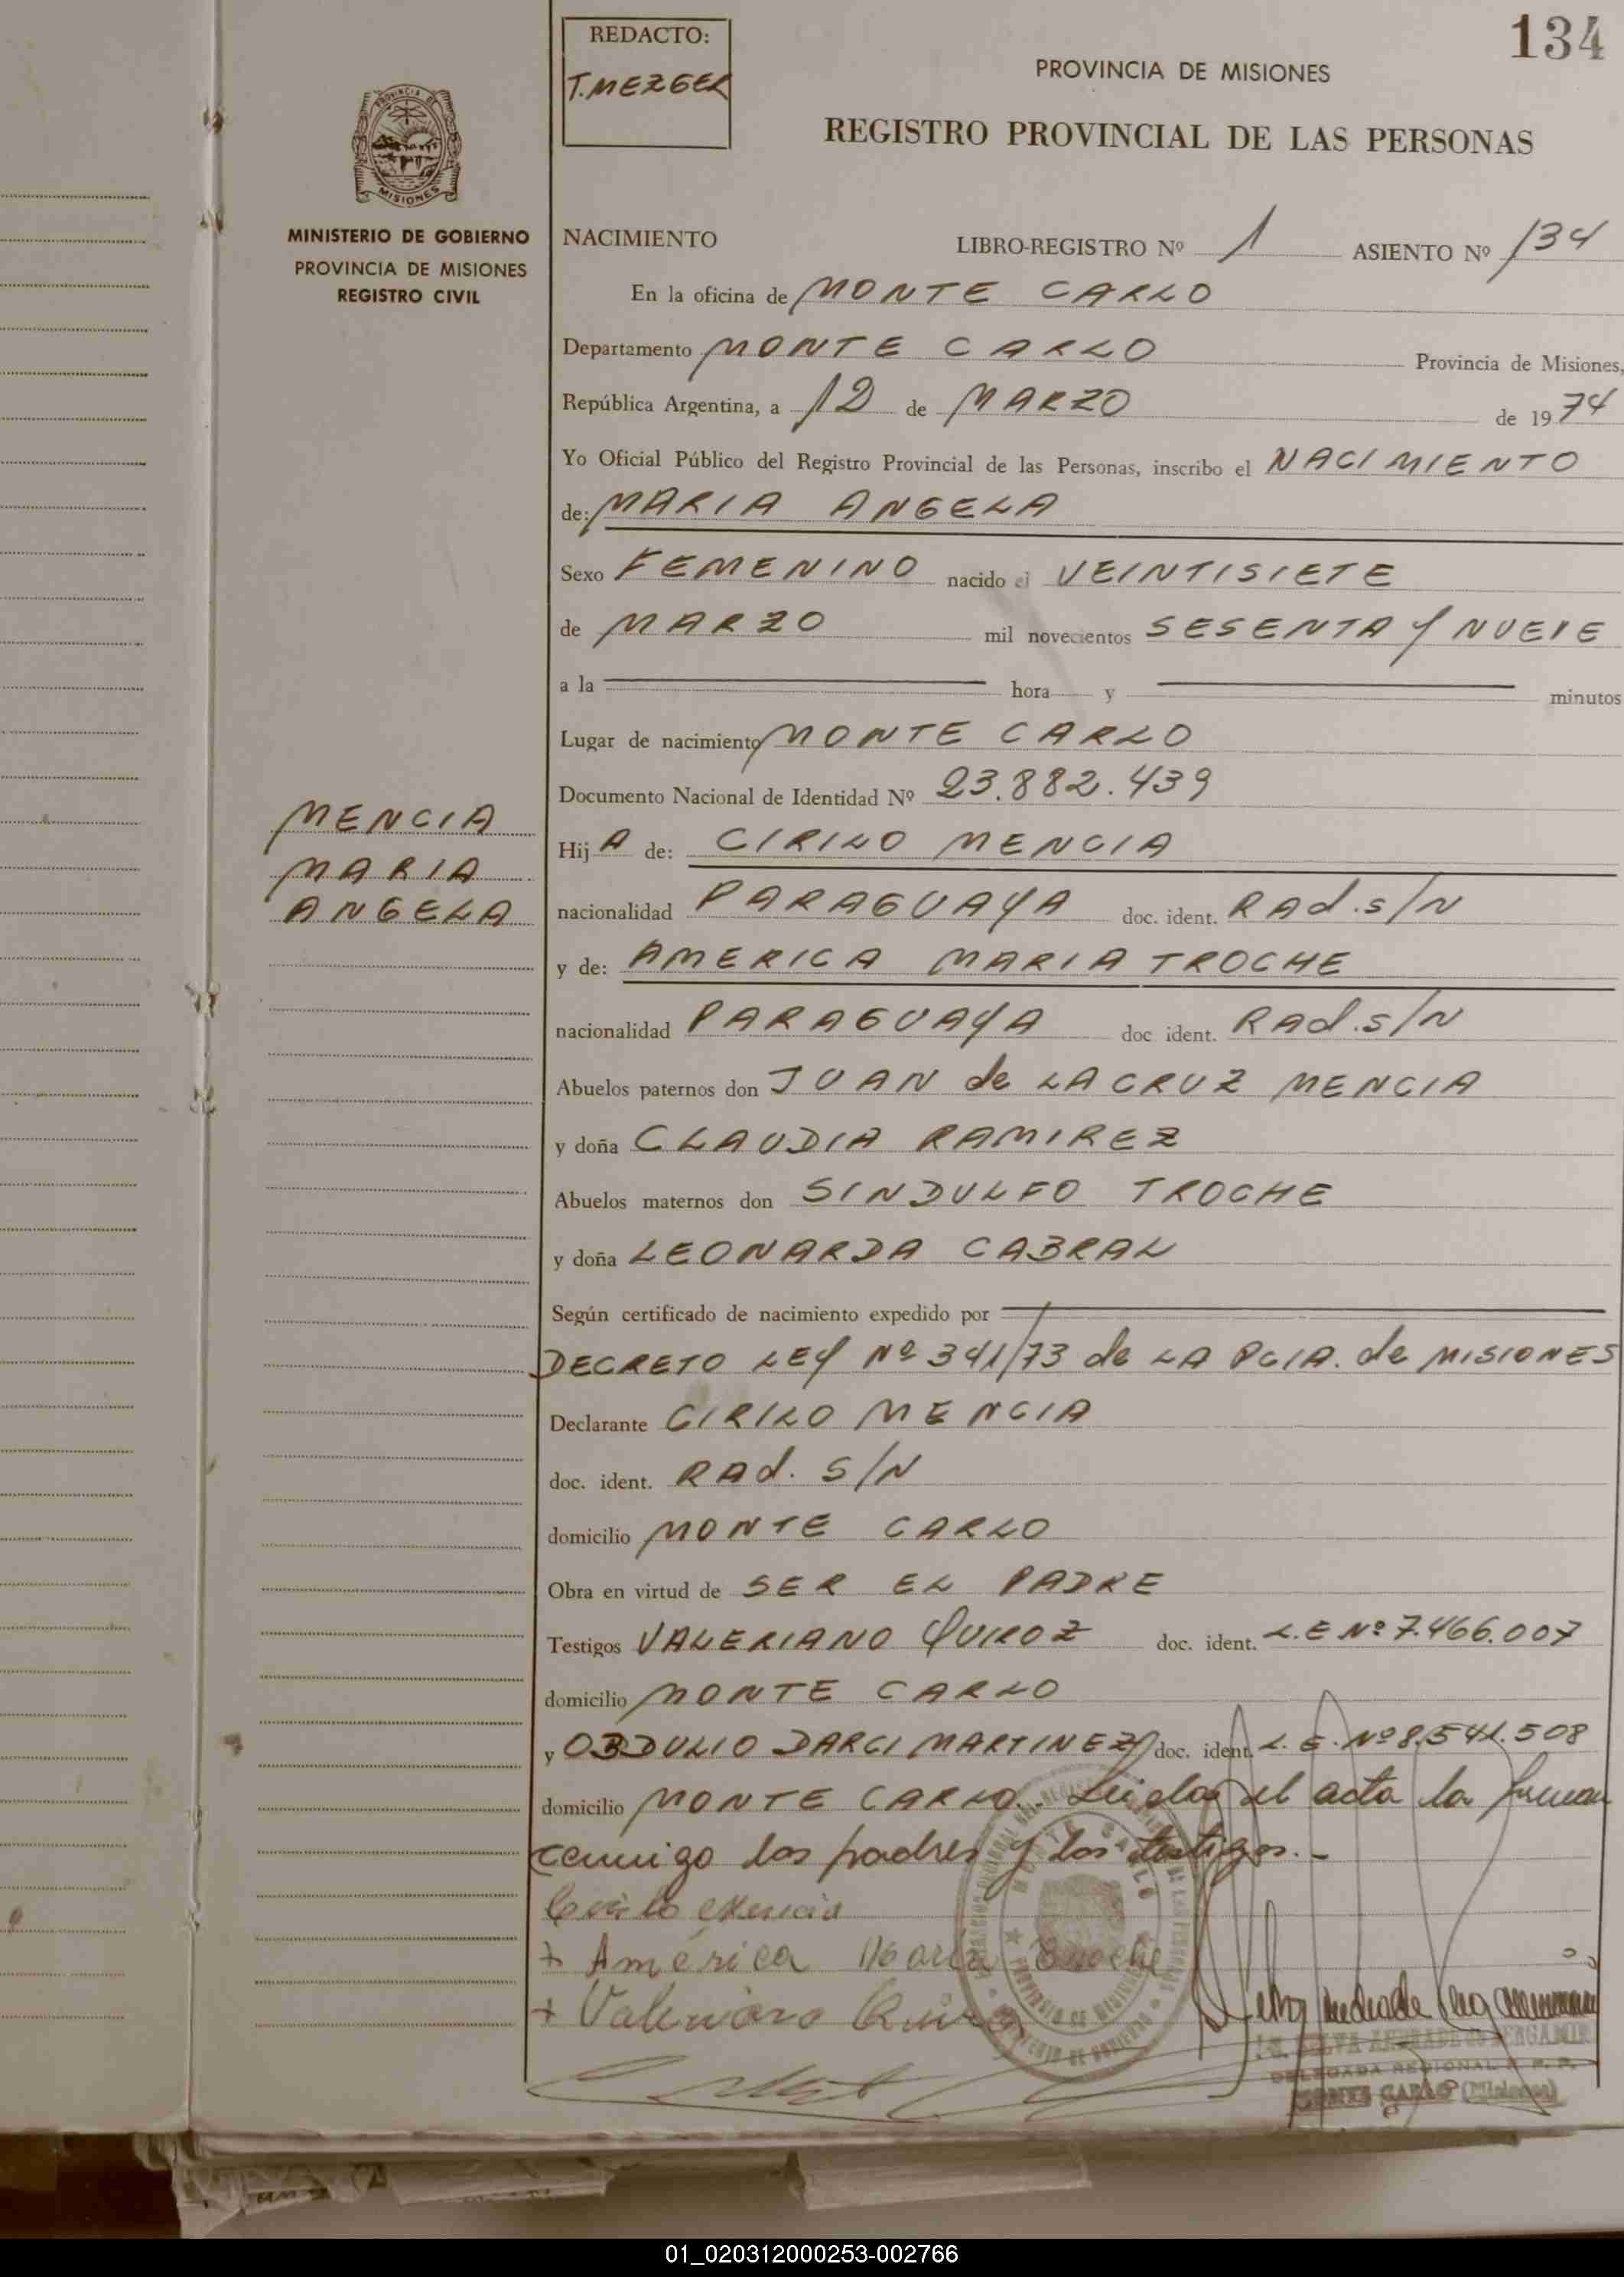 134
REDACTO:
T. MEZGER
PROVINCIA DE MISIONES
REGISTRO PROVINCIAL DE LAS PERSONAS
PROVINCIA DE
MISIONES
MINISTERIO DE GOBIERNO
PROVINCIA DE MISIONES
REGISTRO CIVIL
NACIMIENTO LIBRO-REGISTRO Nº 1 ASIENTO Nº 134
En la oficina de MONTE CARLO
Departamento MONTE CARLO Provincia de Misiones,
República Argentina, a 12 de MARZO de 1974
Yo Oficial Público del Registro Provincial de las Personas, inscribo el NACIMIENTO
de: MARIA ANGELA
Sexo FEMENINO nacido el VEINTISIETE
de MARZO mil novecientos SESENTA Y NUEVE
a la hora y minutos
Lugar de nacimiento MONTE CARLO
Documento Nacional de Identidad Nº 23.882.439
MENCIA
MARIA
ANGELA
HijA de: CIRILO MENCIA
nacionalidad PARAGUAYA doc. ident. RAd. s/N
y de: AMERICA MARIA TROCHE
nacionalidad PARAGUAYA doc ident. RAd. s/N
Abuelos paternos don JUAN de LA CRUZ MENCIA
y doña CLAUDIA RAMIREZ
Abuelos maternos don SINDULFO TROCHE
y doña LEONARDA CABRAL
Según certificado de nacimiento expedido por
DECRETO LEY Nº 341/73 de LA PCIA. de MISIONES
Declarante CIRILO MENCIA
doc. ident. RAd. S/N
domicilio MONTE CARLO
Obra en virtud de SER EL PADRE
Testigos VALERIANO QUIROZ doc. ident. L.E Nº 7.466.007
domicilio MONTE CARLO
y OBDULIO DARCI MARTINEZ doc. ident. L.E. Nº 8.541.508
domicilio MONTE CARLO. Leida el acta la firman
conmigo los padres y los testigos.-
Cirilo Mencia
+ América María Troche
+ Valeriano Quiroz
MONTE CARLO
PROVINCIA DE MISIONES
SELVA ANDRADE DE BENGAMIN
DELEGADA REGIONAL R. P. P.
MONTE CARLO (Misiones)
01_020312000253-002766